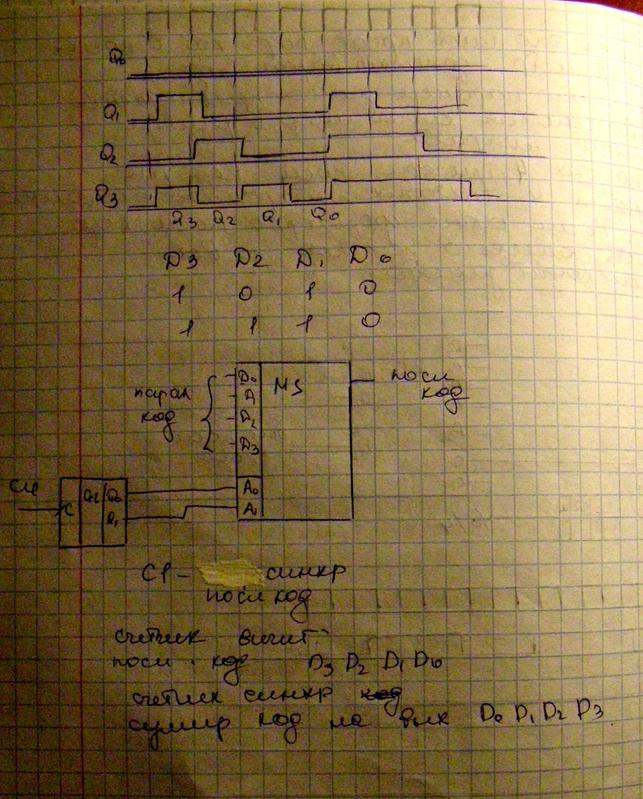 Q0
Q1
Q2
Q3
Q3 Q2 Q1 Q0
D3 D2 D1 D0
1 0 1 0
1 1 1 0
парал код
D0
D1
D2
D3
MS
посл код
C
Q0
Q1
A0
A1
синхр
посл код
счетчик вычит
посл. код D3 D2 D1 D0
счетчик синхр
суммир код на вых D0 D1 D2 D3